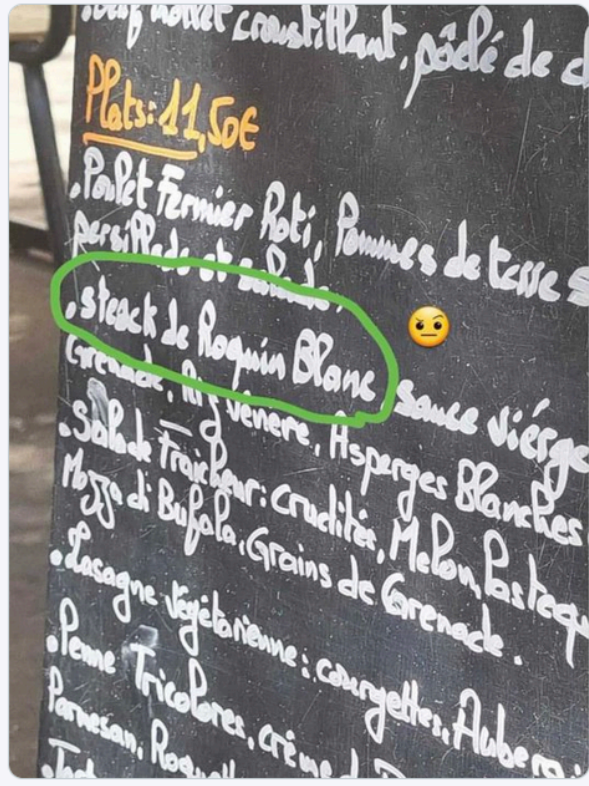 croustillant, pôélé de
Plats: 11,50€
.Poulet Fermier Roti, Pommes de terre
persillade et salade.
.steack de Roquin Blanc sauce viérge
Grenade, Riz Vénere, Asperges Blanches
.Salade Fraicheur: crudités, Melon, Pasteq
Mozza di Bufala, Grains de Grenade.
.Lasagne végétarienne: courgettes, Auberg
.Penne Tricolores, crème d
Parmesan, Roquett